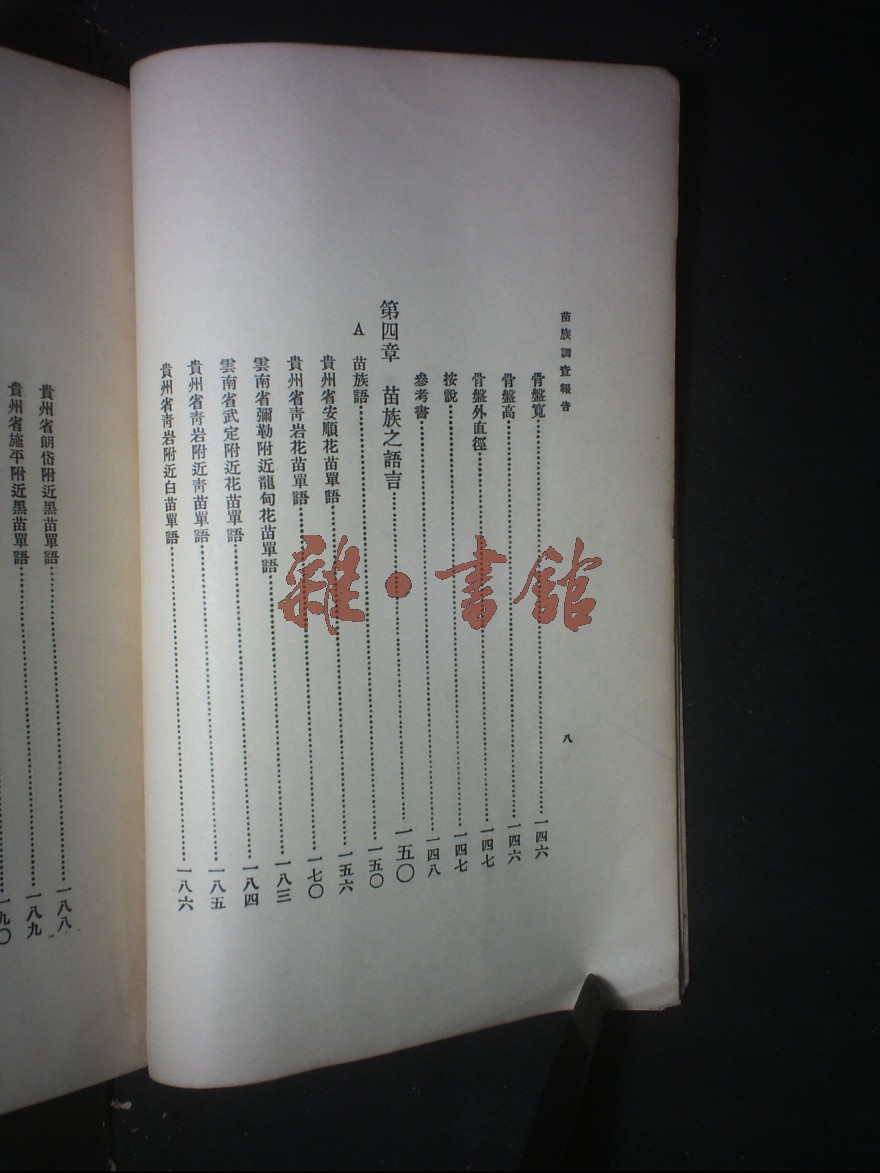 苗族調查報告
八
骨盤寬⋯⋯一四六
骨盤高⋯⋯一四六
骨盤外直徑⋯⋯一四七
按說⋯⋯一四七
參考書⋯⋯一四八
第四章 苗族之語言⋯⋯一五〇
A 苗族語⋯⋯一五〇
貴州省安順花苗單語⋯⋯一五六
貴州省靑岩花苗單語⋯⋯一七〇
雲南省彌勒附近龍旬花苗單語⋯⋯一八三
雲南省武定附近花苗單語⋯⋯一八四
貴州省靑岩附近靑苗單語⋯⋯一八五
貴州省靑岩附近白苗單語⋯⋯一八六
貴州省朗岱附近黑苗單語⋯⋯一八八
貴州省施平附近黑苗單語⋯⋯一八九
一九〇
雜·書館